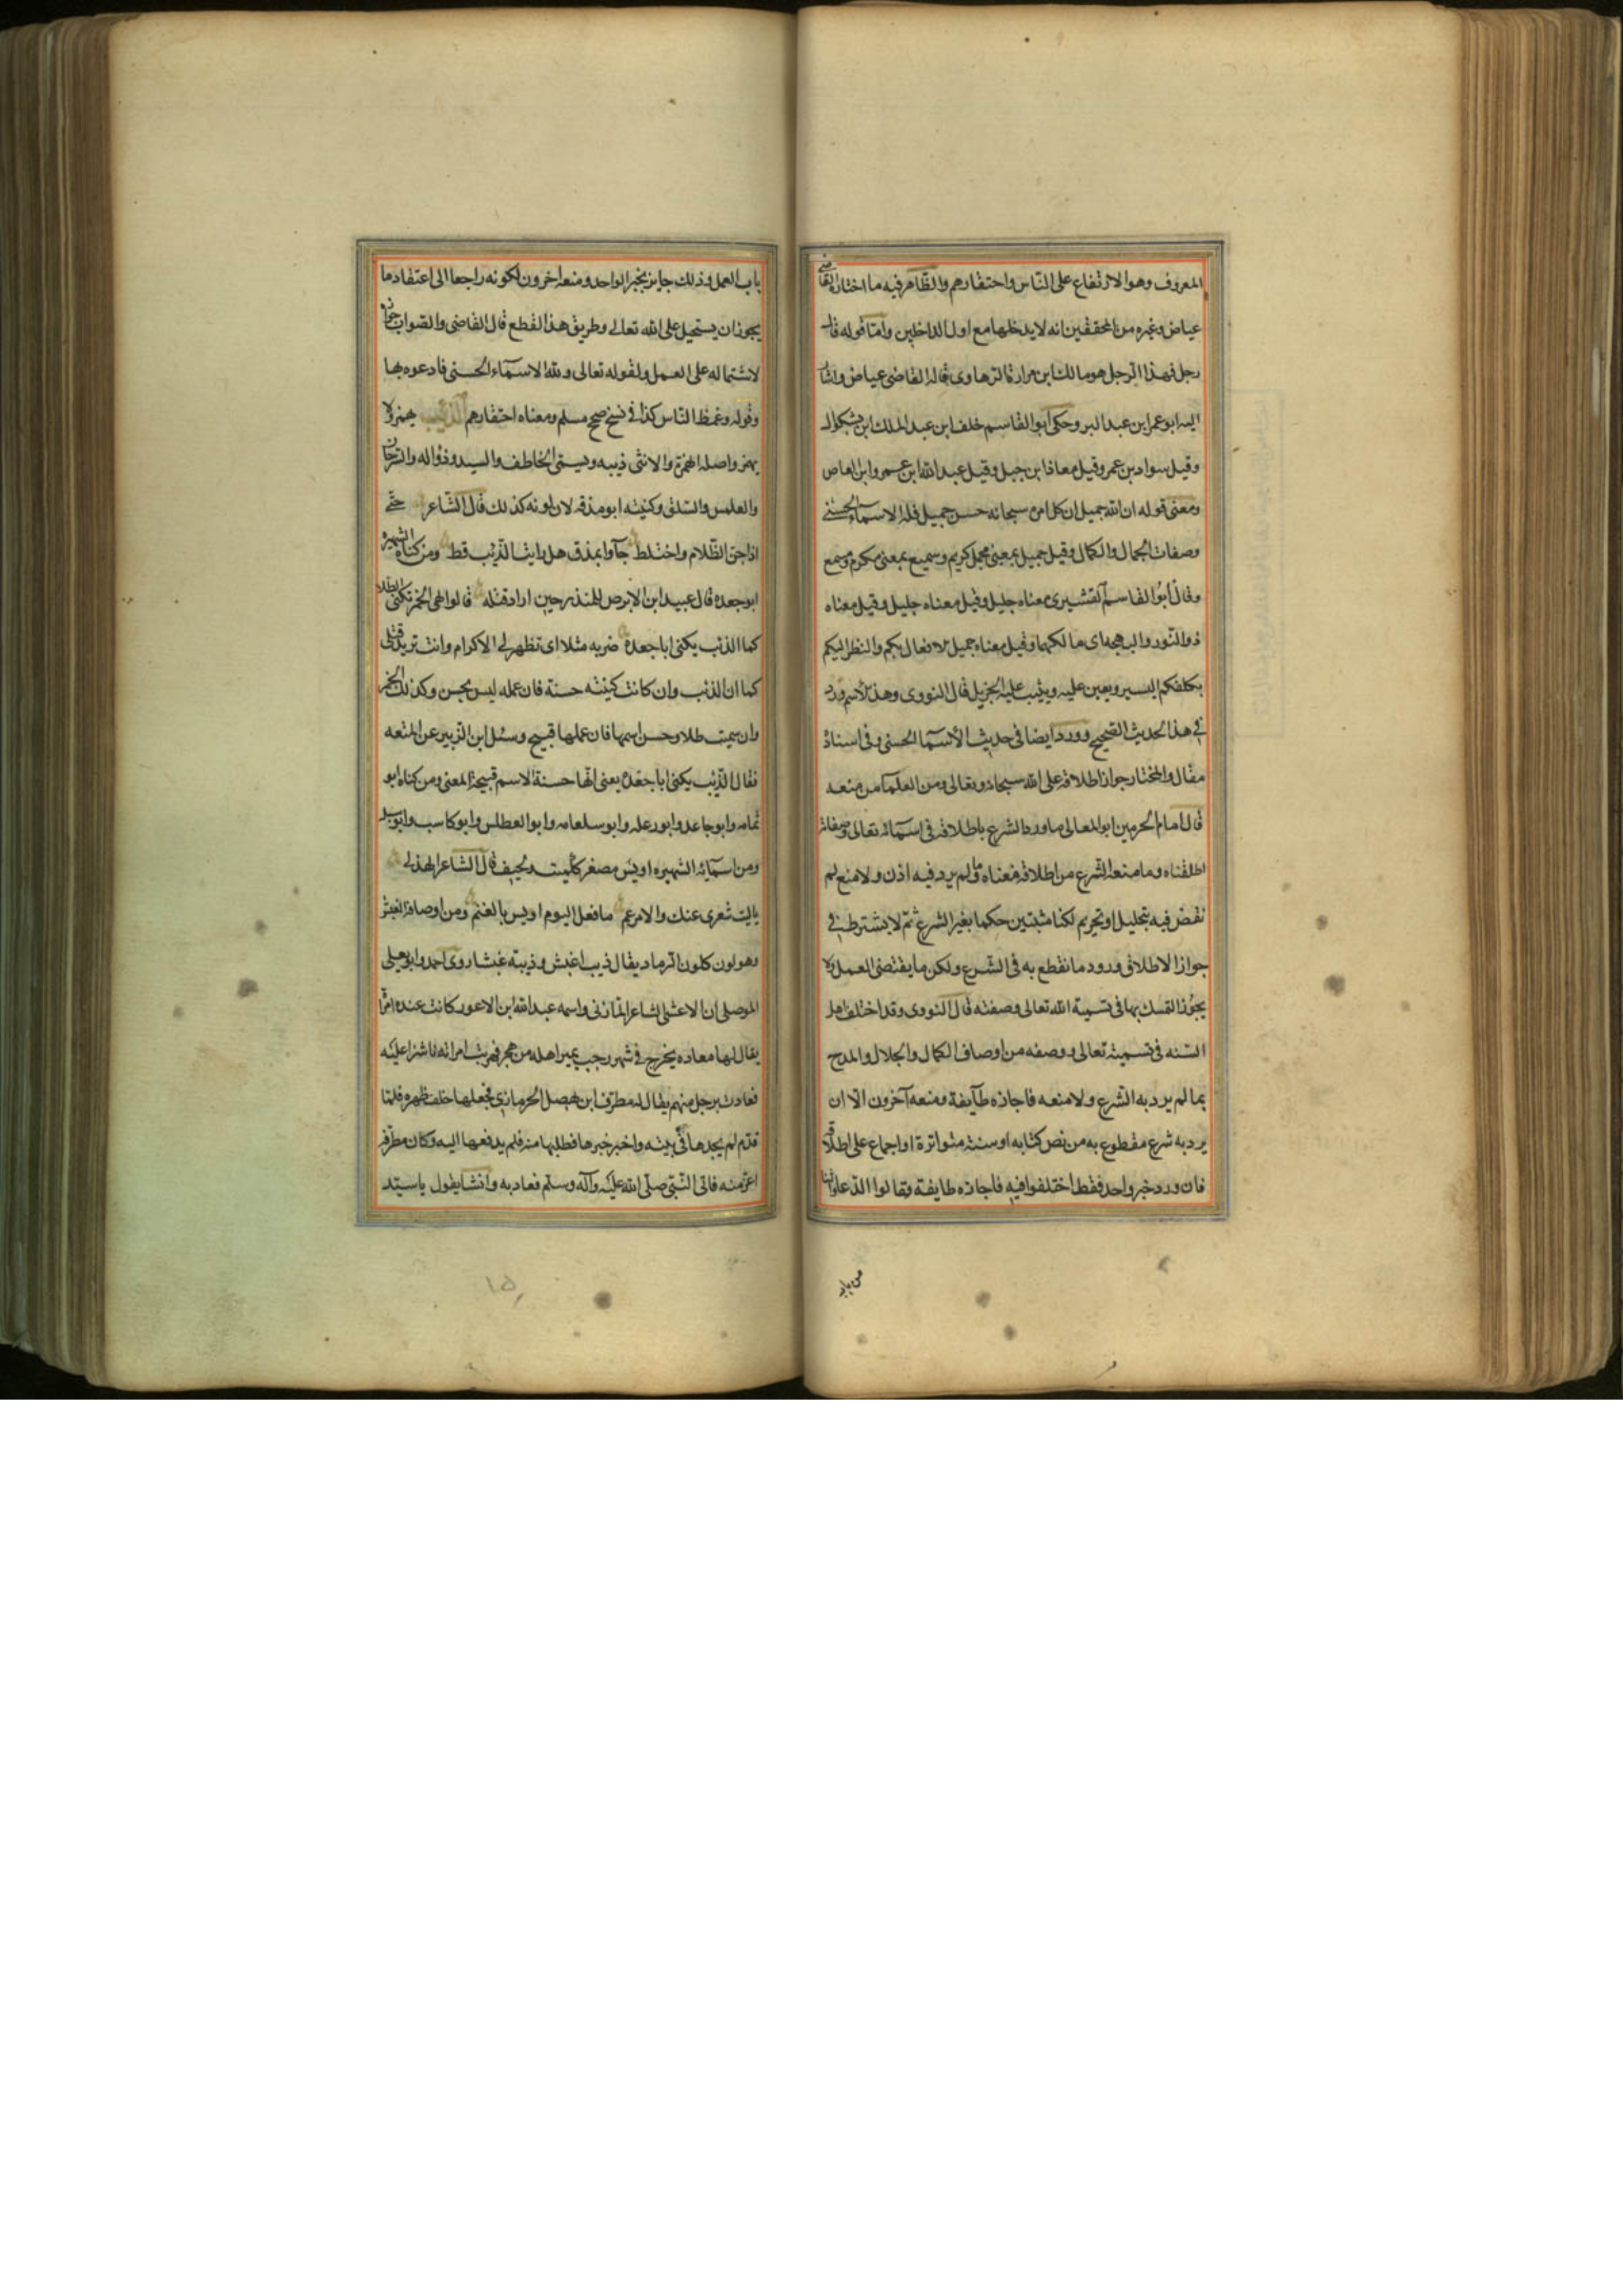 المعروف وهو الارتفاع على الناس واحتقارهم والظاهر فيه ما اختاره القاضى
عياض وغيره من المحققين انه لا يدخلها مع اول الداخلين واما قوله قال
رجل فهذا الرجل هو مالك ابن مرارة الرهاوى قاله القاضى عياض واشار
اليه ابو عمر ابن عبد البر وحكى ابوا القاسم خلف ابن عبد الملك ابن بشكوال
وقيل سواد بن عمر وقيل معاذ ابن جبل وقيل عبد الله ابن عمرو ابن العاص
ومعنى قوله ان الله جميل ان كل امره سبحانه حسن جميل فله الاسماء الحسنى
وصفات الجمال والكمال وقيل جميل بمعنى مجمل كريم وسميع بمعنى مكرم ومسمع
وقال ابوا القاسم القشيرى معناه جليل وقيل معناه جليل وقيل معناه
ذو النور والبهجه اى مالكهما وقيل معناه جميل الافعال بكم والنظر اليكم
يكلفكم اليسير ويعين عليه ويثيب عليه الجزيل قال النووى وهذا الاسم ورد
فى هذا الحديث الصحيح وورد ايضا فى حديث الاسما الحسنى وفى اسناده
مقال والمختار جواز اطلاقه على الله سبحانه وتعالى ومن العلما من منعه
قال امام الحرمين ابو المعالى ما ورد الشرع باطلاقه فى اسمائه تعالى وصفاته
اطلقناه وما منعه الشرع من اطلاقه منعناه وما لم يرد فيه اذن ولا منع لم
نقض فيه بتحليل او تحريم لكنا مثبتين حكما بغير الشرع ثم لا يشترط فى
جواز الاطلاق ورود ما نقطع به فى الشرع ولكن ما يقتضى العمل لا
يجوز التمسك بها فى تسمية الله تعالى وصفته قال النووى وقد اختلف اهل
السنه فى تسميته تعالى ووصفه من اوصاف الكمال والجلال والمدح
بما لم يرد به الشرع ولا منعه فاجازه طآيفة ومنعه آخرون الا ان
يرد به شرع مقطوع به من نص كتابه او سنة متواترة او اجماع على اطلاقه
فان ورد خبر واحد فقط اختلفوا فيه فاجازه طايفة وقالوا الدعاء والثنا
من باب
باب العمل وذلك جايز بخبر الواحد ومنعه اخرون لكونه راجعا الى اعتقاد ما
يجوز ان يستحيل على الله تعالى وطريق هذا القطع قال القاضى والصواب جوازه
لاشتماله على العمل ولقوله تعالى ولله الاسمآء الحسنى فادعوه بها
وقوله وغمظ الناس كذا فى نسخ صحيح مسلم ومعناه احتقارهم الذئب يهمز ولا
يهمز واصله الهمزة والانثى ذيبه ويسمى الخاطف والسيد وذؤاله والسرحان
والعملس والسلق وكنيته ابو مذقه لان لونه كذلك قال الشاعر حتى
اذا جن الظلام واختلط جآوا بمذق هل رايت الذيب قط ومن كناه الشهيره
ابو جعده قال عبيد ابن الابرص للمنذر حين اراد قتله قالوا هى الخمر تكنى الطلا
كما الذئب يكنى ابا جعدة ضربه مثلا اى تظهر لى الاكرام وانت تريد قتلى
كما ان الذئب وان كانت كنيته حسنة فان عمله ليس بحسن وكذلك الخمر
وان سميت طلا وحسن اسمها فان عملها قبيح وسئل ابن الزبير عن المتعه
فقال الذيب يكنى ابا جعدة يعنى انها حسنة الاسم قبيحة المعنى ومن كناه ابو
ثمامه وابو جاعد وابو رعله وابو سلعامه وابو العطلس وابو كاسب وابو سبله
ومن اسمآئه الشهيره اويس مصغر كميت ولحيف قال الشاعر الهذلى
ياليت شعرى عنك والامر عم ما فعل اليوم اويس بالغنم ومن اوصافه الغبش
وهو لون كلون الرماد يقال ذيب اغبش وذيبة غبشا روى احمد وابو يعلى
الموصلى ان الاعشى الشاعر المازنى واسمه عبد الله ابن الاعور كانت عنده امراة
يقال لها معاده يخرج فى شهر رجب يمير اهله من هجر فهربت امراته ناشزا عليه
فعادت برجل منهم يقال له مطرف ابن بهصل الحرمازى فجعلها خلف ظهره فلما
قدم لم يجدها فى بيته واخبر خبرها فطلبها منه فلم يدفعها اليه وكان مطرف
اعز منه فاتى النبى صلى الله عليه وآله وسلم فعاد به وانشا يقول يا سيد
١٥